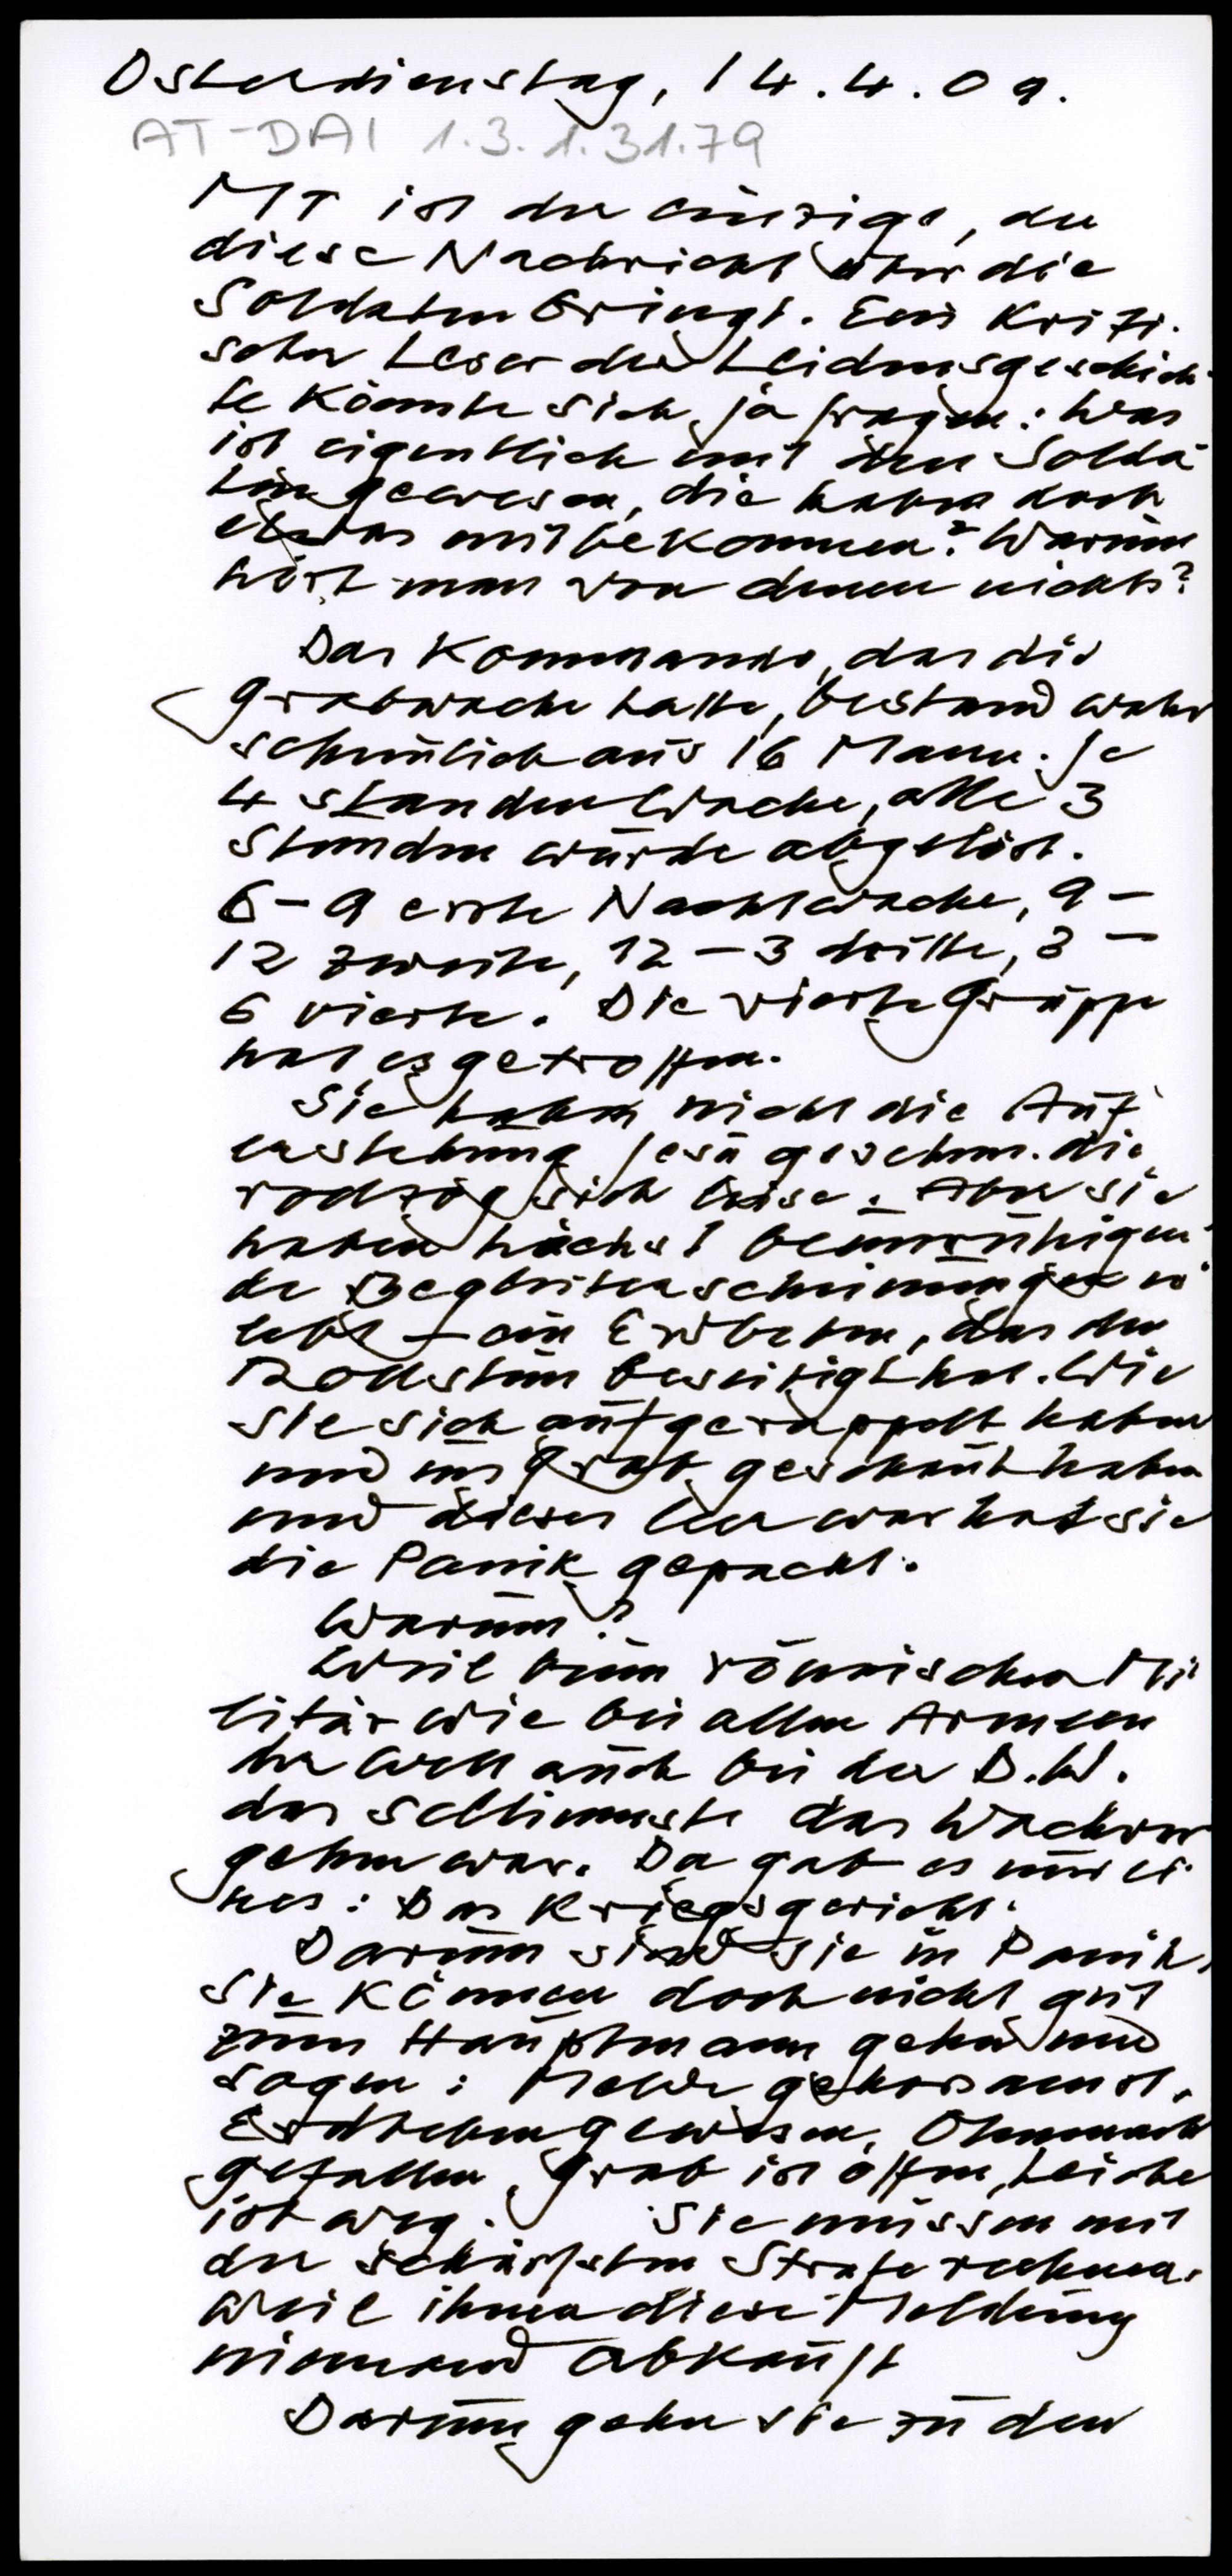 Osterdienstag, 14.4.09.
AT-DAI 1.3.1.31.79
MT ist der einzige, der
diese Nachricht über die
Soldaten bringt. Ein kriti-
scher Leser der Leidensgeschich-
te könnte sich ja fragen: Was
ist eigentlich mit den Solda-
ten gewesen, die haben doch
etwas mitbekommen? Warum
hört man von denen nichts?
Das Kommando, das die
Grabwache hatte, bestand wahr
scheinlich aus 16 Mann. Je
4 standen Wache, alle 3
Stunden wurde abgelöst.
6-9 erste Nachtwache, 9-
12 zweite, 12-3 dritte, 3-
6 vierte. Die vierte Gruppe
hat es getroffen.
Sie haben nicht die Auf
erstehung Jesu gesehen. die
vollzog sich leise. Aber sie
haben höchst beunruhigen-
de Begleiterscheinungen er-
lebt - ein Erdbeben, das den
Rollstein beseitigt hat. Wie
sie sich aufgerappelt haben
und ins Grab geschaut haben
und dieses leer war hat sie
die Panik gepackt.
Warum?
Weil beim römischen Mi-
litär wie bei allen Armeen
der Welt auch bei der D.W.
das Schlimmste das Wachver
gehen war. Da gab es nur ei-
nes: Das Kriegsgericht.
Darum sind sie in Panik,
Sie können doch nicht gut
zum Hauptmann gehen und
sagen: Melde gehorsamst,
Erdbeben gewesen, Ohnmacht
gefallen, Grab ist offen, Leiche
ist weg. Sie müssen mit
der schärfsten Strafe rechnen.
Weil ihnen diese Meldung
niemand abkauft
Darum gehen sie zu den